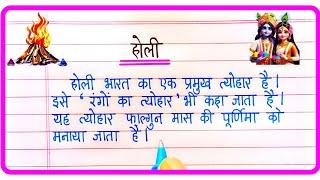 होली
होली भारत का एक प्रमुख त्योहार है।
इसे ' रंगों का त्योहार ' भी कहा जाता है।
यह त्योहार फाल्गुन मास की पूर्णिमा को
मनाया जाता है।